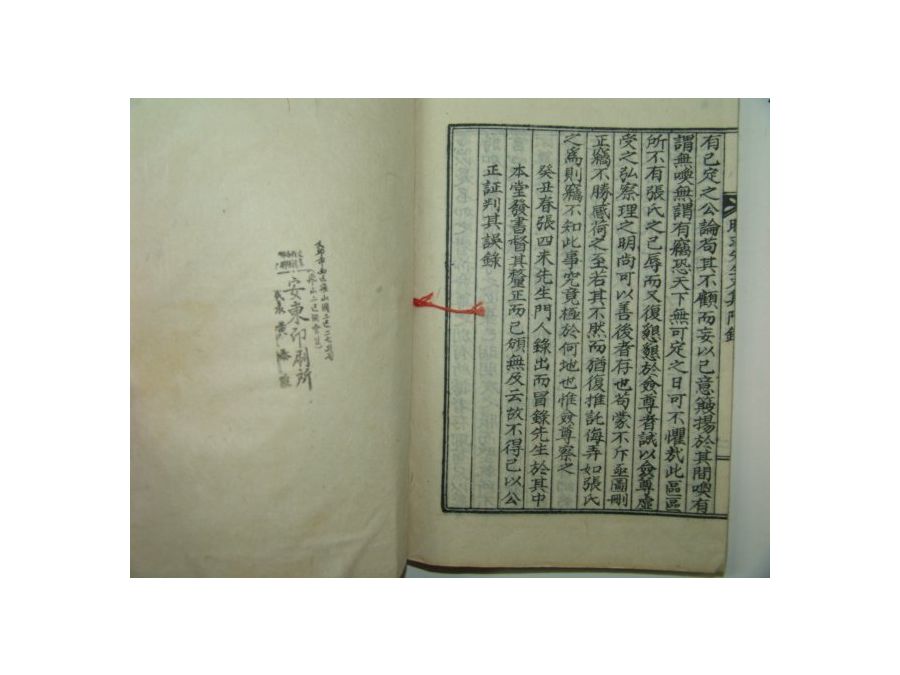 有已定之公論苟其不顧而妄以已意皷揚於其間噢有
謂無噢無謂有竊恐天下無可定之日可不懼哉此區區
所不有張氏之已辱而又復懇懇於僉尊者誠以僉尊虛
受之弘察理之明尚可以善後者存也苟蒙不斥亟圖刪
正竊不勝感荷之至若其不然而猶復推託侮弄如張氏
之爲則竊不知此事究竟極於何地也惟僉尊察之
癸丑春張四未先生門人錄出而冒錄先生於其中
本堂發書督其釐正而已頒無及云故不得已以公
正証判其誤錄
安東印刷所